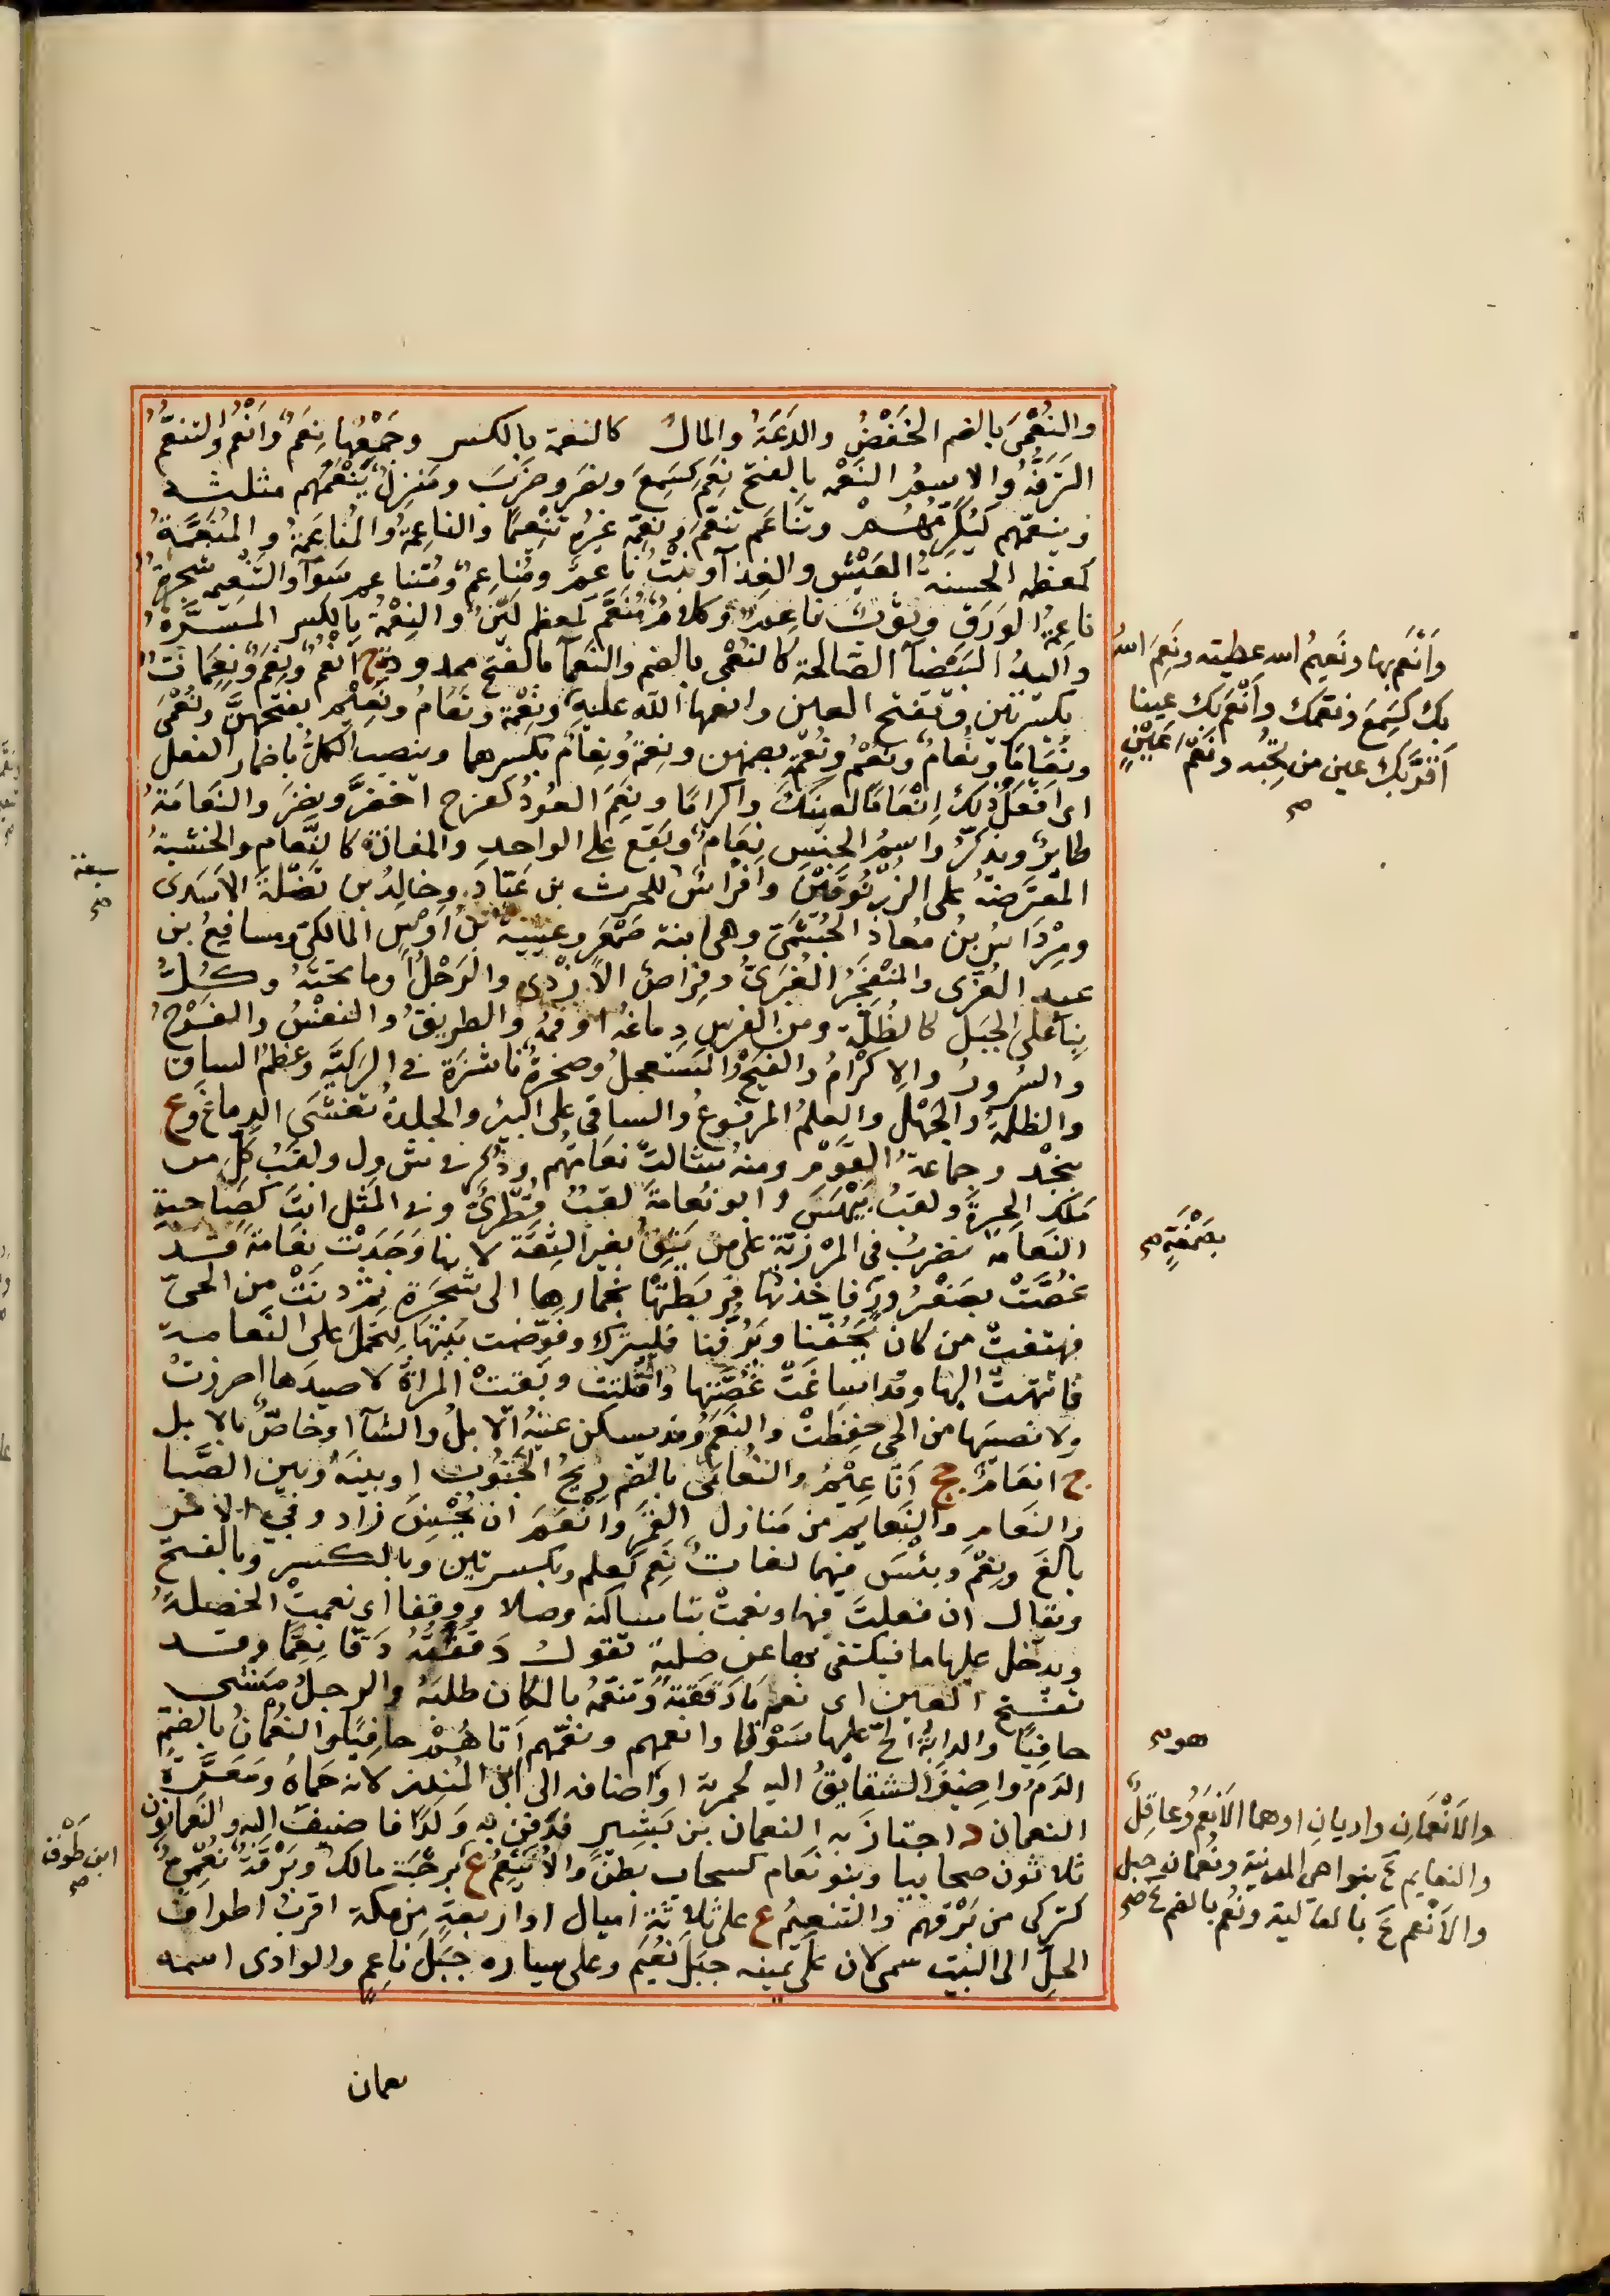 والنُعْمَى بالضم الخَفْضُ والدَعَةُ والمالُ كالنعمة بالكسر وجَمْعُها نِعَمٌ وأَنْعُمٌ والتنعُّمُ
التَرَفُّهُ والاسمُ النَعْمة بالفتح نَعِمَ كسَمِعَ ونصَر وضرَبَ ومَنزِلٌ يَنْعَمُهم مثلثه
وينعمهم كيُكرِمُهُم وتَنَاعَم تنعَّمَ ونعَّمه غيرُه تَنْعِيمًا والناعِمةُ والمُناعَمةُ والمُنَعَّمةُ
كمعظمه الحسنةُ العَيْشِ والغذآ ونبْتٌ ناعِمٌ ومُناعِمٌ ومُتناعم سَوآ والتَنْعيمه شجرةٌ
ناعمةُ الورَق وثَوبٌ ناعِمٌ وكلامٌ مُنَعَّم كمعظم ليّنٌ والنِعْمةُ بالكسر المسَرَّةُ
واليدُ البَيْضآ الصالحة كالنُعْمى بالضم والنَعمآ بالفتح ممدوده ج أنْعُمٌ ونِعَمٌ ونِعِمَاتٌ
بكسرتين وتفتح العين وانعمها الله عليه ونِعْمة ونَعَامُ ونَعِيْم بفتحهنَّ ونُعْمَى
ونُعَامَى ونُعامُ ونُعْمُ ونُعْمة بضمهن ونِعْمةُ ونِعامُ بكسرهما وينصب الكلُّ باضمار الفعل
اى افعَل ذلك إنْعَامًا لعينكَ واكرامًا ونَعِمَ العُودُ كفرح اخضَرَّ ونضَرَ والنَعَامَةُ
طايرٌ ويذكّرُ واسمُ الجِنسِ نَعامٌ ويَقع على الواحدِ والمفازة كالنَّعام والخشبةُ
المعترضةُ على الزُرْنُوقَيْنِ وافراسٌ للحرث بن عَبّادٍ وخالدُ بن نَضْلَةَ الاَسَدى
ومِرْداسُ بنُ مُعاذٍ الجُشَمىّ وهى ابنة صَمْعَرٍ وعيينةُ بنُ اَوْسٍ المالكىّ ومسافعُ بن
عبد العُزّى والمُنْفَجِرُ الغُبَرىُّ وفِرَاصٌ الاَزْدىّ والرَجْلُ اَوما تحتَهُ وكُلُّ
بِنآ على الجبَلِ كالظُلّة ومن الفرس دِماغُه اَو فمُه والطريقُ والنفسُ والفَرَحُ
والسُرورُ والاِكْرامُ والفَيْجُ المُستَعجِلُ وصخرةٌ ناشزةٌ فى الرَكيّة وعَظمُ الساق
والظلمةُ والجَهْلُ والعلمُ المرفوعُ والساقى على البئرِ والجلدةُ تغشَّى الدِماغَ وع
بنجْد وجماعةُ القَوْمِ ومنه شالتْ نعامَتُهم وذُكر فى ش و ل ولقَبُ كلِّ من
مَلك الحِيرةَ ولقبُ بَيْهَسَ وابو نعامةَ لقَبُ قَطَرِىٍّ وفى المثل انتَ كصَاحبةِ
النَعامة يضربُ فى المرزئة على من يَثِقُ بغير الثقة لانها وَجَدَتْ نعامةً قد
غُصَّتْ بصَعْرُورٍ فاخذتْها فربَطَتْها بخمارها الى شجَرةٍ ثم دنَتْ من الحىّ
فهتفتْ من كان يَحُفُّنا ويَرُفُّنا فليترُكْ وقوّضت بَيْتَها لتحْمِل على النَعامة
فانتهتْ اليها وقد اَساغَتْ غُصَّتَها واَفْلَتت وبَقيَتْ المراةُ لا صيدَها احرزتْ
ولا نصيبَها من الحىّ حفِظتْ والنَعَمُ وقد يسكن عينُهُ الاِبلُ والشآ او خاصٌّ بالابل
ج انعَامٌ جج اَناعِيْمُ والنُعامَى بالضم رِيحُ الجَنُوبِ او بينه وبين الصَّبا
والنَعامِ والنَعايم من مَنازل القمر واَنْعَمَ ان يُحْسِنَ زاد وفى الامر
بالغَ ونِعْمَ وبئسَ فيهما لغاتٌ نَعِمَ كعلم وبكسرتين وبالكسر وبالفتح
ويقال ان فعلتَ فبها ونعمتْ بتا ساكنه وصلا ووقفا اى نعمتْ الخصلةُ
ويدخل عليها ما فيكتفى بها عن صلته تقول دققتُه دَقّا نِعِمّا وقد
تفتح العين اى نعم مَا دَققتهُ وتنعَّمهُ بالمكان طلبَهُ والرجلُ مَشى
حافيًا والدابةُ الحّ عليها سَوْقا وانعمهم ونعّمهم اَتاهُمْ حافِيًا والنُعْمانُ بالضم
الدَمُ واضِيفَ الشقايقُ اليه لحمرته او اضافه الى ابن المُنذر لانه حَماهُ ومَعَرَّةُ
النعمان د اجتازَ به النعمان بن بَشير فدَفن به وَلدًا فاضيفَ اليه والنعمانون
ثلاثون صحابيا وبنو نَعام كسحاب بطنٌ والاُنَيْعِمُ ع برَحَبَة مالك وبَرْقة نُعْمِىٍّ
كتركى من بُرَقهم والتنعيمُ ع على ثلاثة اميال او اربعةٍ من مكة اقربُ اطراف
الحِلّ الى البَيت سمى لان على يمينه جبَلَ نُعَيم وعلى يساره جَبَلَ ناعِمٍ والوادى اسمه
نعمان
وأَنْعَم بها ونَعيمُ الله عطيته ونَعِمَ اللهُ
بك كسَمِعَ ونعمك وأَنْعَم بك عينا
اَقرَّ بك عين من تحبّه ونَعْمَ عَيْنٍ
صح
سبعة
صح
بصَمْغةٍ صح
هو صح
والاَنْعَمانِ واديان او هما الاَنْعَمُ وعاقِلٌ
والنعايم ع بنواحى المدينة ونُعمانه جبل
والاَنْعم ع بالعالية ونُعْم بالضم ع صح
ابن طَوْق
صح